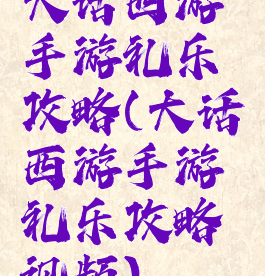 大话西游
手游礼乐
攻略(大话
西游手游
礼乐攻略
视频)